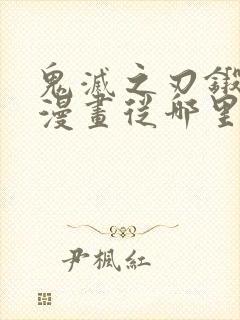 鬼滅之刃鍛
漫畫從哪里
尹楓紅